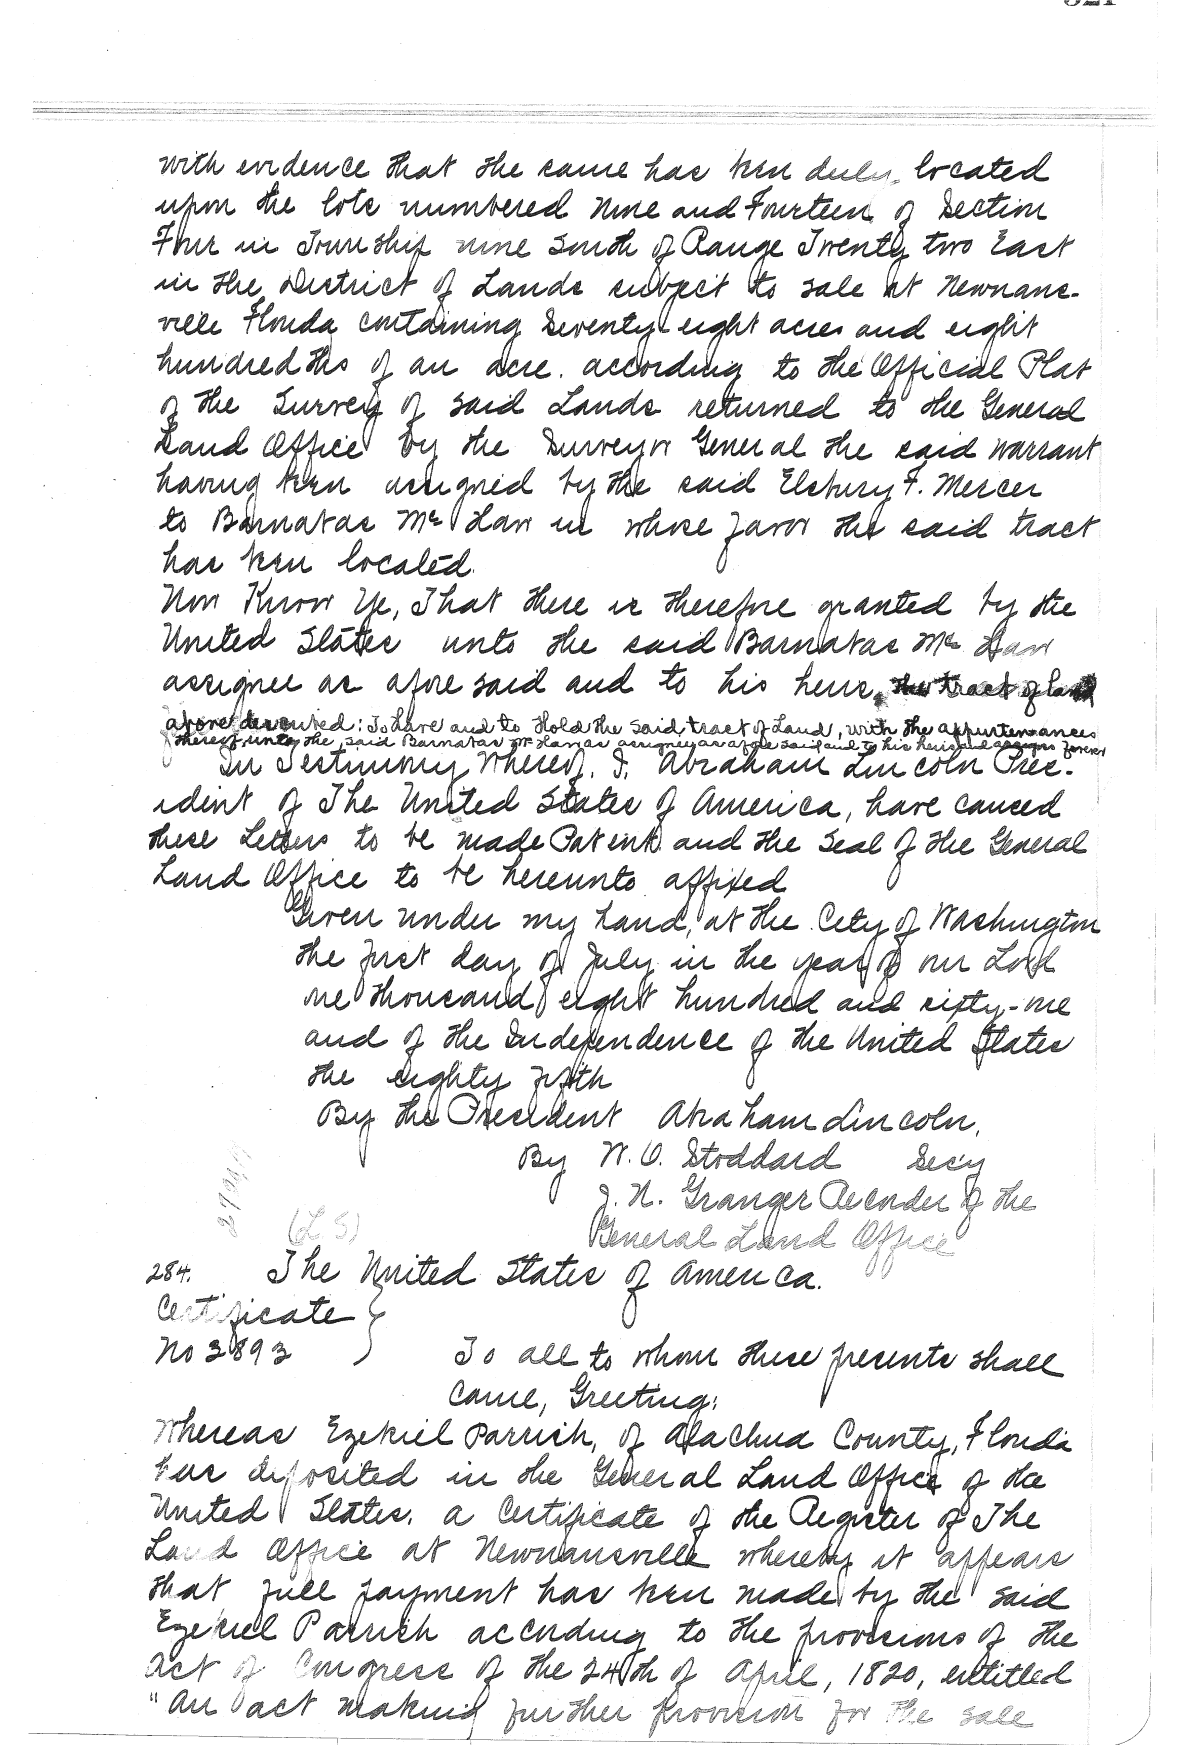 with evidence that the same has been duly located
upon the lots numbered Nine and Fourteen of Section
Four in Township nine South of Range Twenty two East
in the District of Lands subject to sale at Newnans-
ville Florida containing Seventy eight acres and eight
hundredths of an acre. according to the Official Plat
of the Survey of said Lands returned to the General
Land Office by the Surveyor General the said warrant
having been assigned by the said Elsbury F. Mercer
to Barnabas Mc Haw in whose favor the said tract
has been located.
Now Know Ye, That there is therefore granted by the
United States unto the said Barnabas Mc
assignee as afore said and to his heirs the tract of land
above described: To have and to Hold the said tract of Land, with the appurtenances
thereof, unto the said Barnabas Mc as assignee as afore said and to his heirs and assigns forever
In Testimony Whereof, I, Abraham Lincoln Pres-
ident of The United States of America, have caused
these Letters to be made Patent and the Seal of the General
Land Office to be hereunto affixed
Given under my hand, at the City of Washington
the first day of July in the year of our Lord
one thousand eight hundred and sixty-one
and of the Independence of the United States
the eighty fifth
By the President Abraham Lincoln,
By W. O. Stoddard Secy
J. N. Granger Recorder of the
(L S) General Land Office
284. The United States of America.
Certificate
No 2893 To all to whom these presents shall
come, Greeting:
Whereas Ezekiel Parrish, of Alachua County, Florida
has deposited in the General Land Office of the
United States, a Certificate of the Register of The
Land Office at Newnansville whereby it appears
that full payment has been made by the said
Ezekiel Parrish according to the provisions of the
Act of Congress of the 24th of April, 1820, entitled
"An act making further provision for the sale